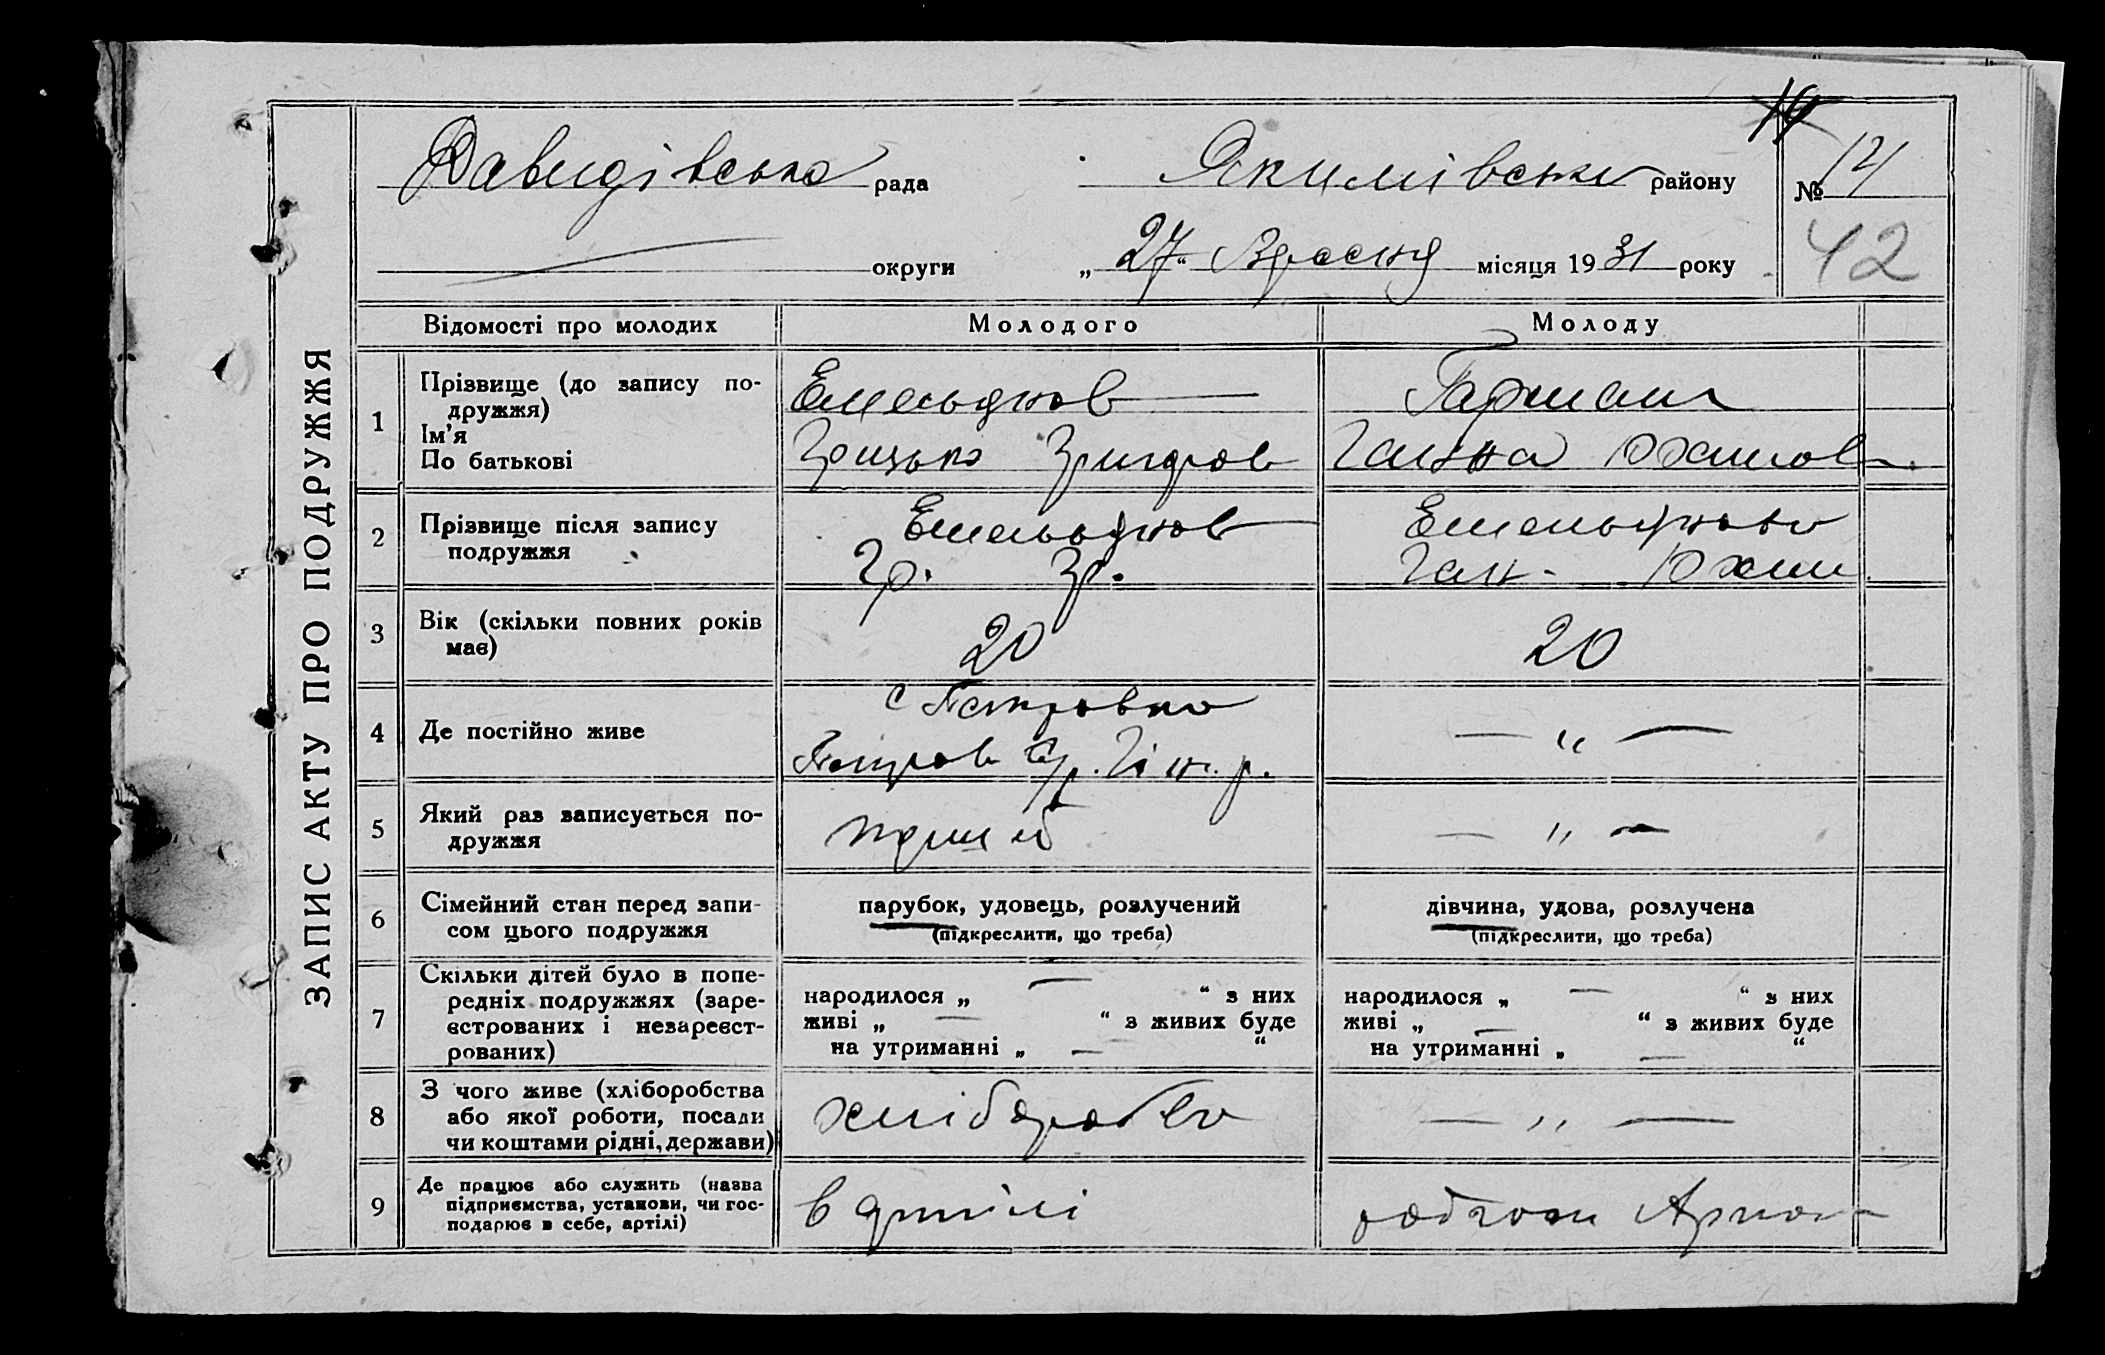 ЗАПИС АКТУ ПРО ПОДРУЖЖЯ
Давидівська рада
Якимівськ району
№ 14
округи
„27“ Вресня місяця 1931 року
42
Відомості про молодих
Молодого
Молоду
1
Прізвище (до запису по-
дружжя)
Ім'я
По батькові
Емельянов
Грицько
Гарман
Ганна
2
Прізвище після запису
подружжя
Емельянов
Гр.
Емельянова
Ган.
3
Вік (скільки повних років
має)
20
20
4
Де постійно живе
с Петровка
— „ —
5
Який раз записується по-
дружжя
перший
— „ —
6
Сімейний стан перед запи-
сом цього подружжя
парубок, удовець, розлучений
(підкреслити, що треба)
дівчина, удова, розлучена
(підкреслити, що треба)
7
Скільки дітей було в попе-
редніх подружжях (заре-
єстрованих і незареєст-
рованих)
народилося „ — “ з них
живі „ — “ з живих буде
на утриманні „ — “
народилося „ — “ з них
живі „ — “ з живих буде
на утриманні „ — “
8
З чого живе (хліборобства
або якої роботи, посади
чи коштами рідні, держави)
хліборобство
— „ —
9
Де працює або служить (назва
підприємства, установи, чи гос-
подарює в себе, артілі)
в артілі